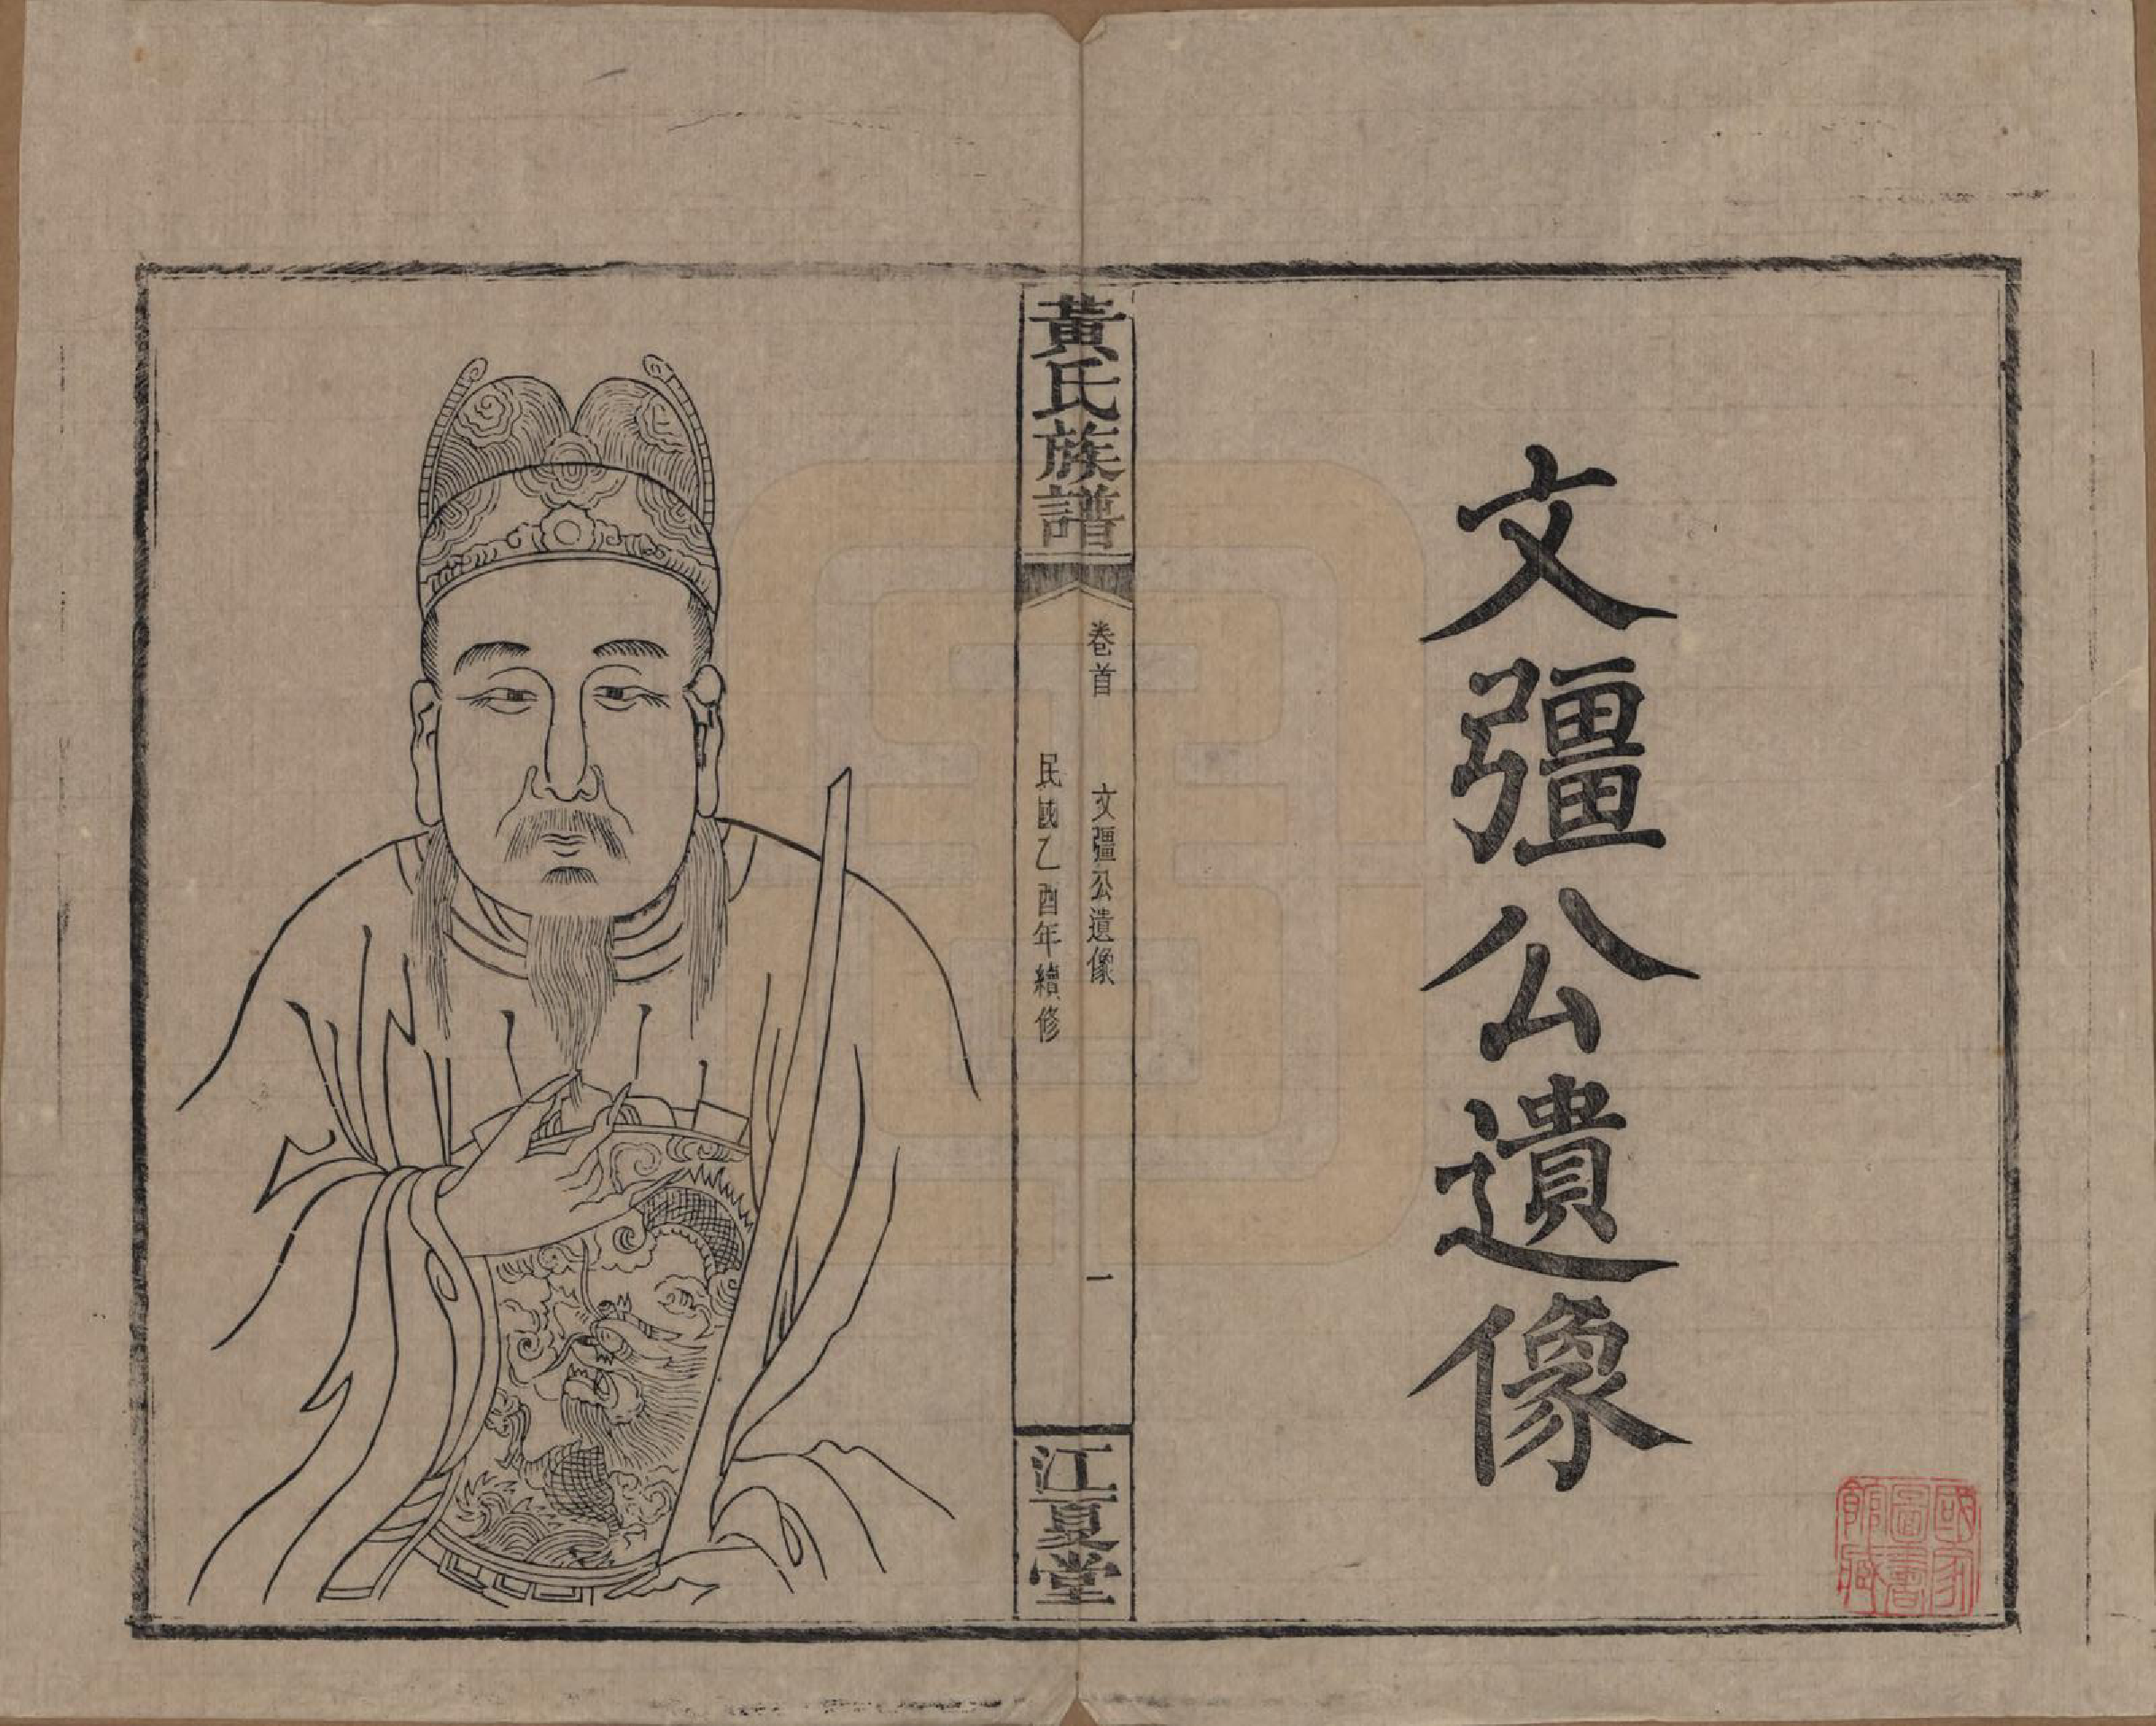 文彊公遺像
黃氏族譜
卷首
文彊公遺像
一
民國乙酉年續修
江夏堂
國家
圖書
館藏